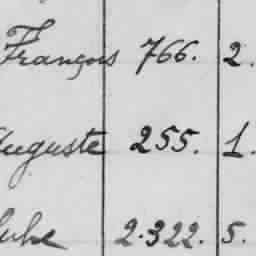 François 766. 2.
Auguste 255. 1.
2.322. 5.